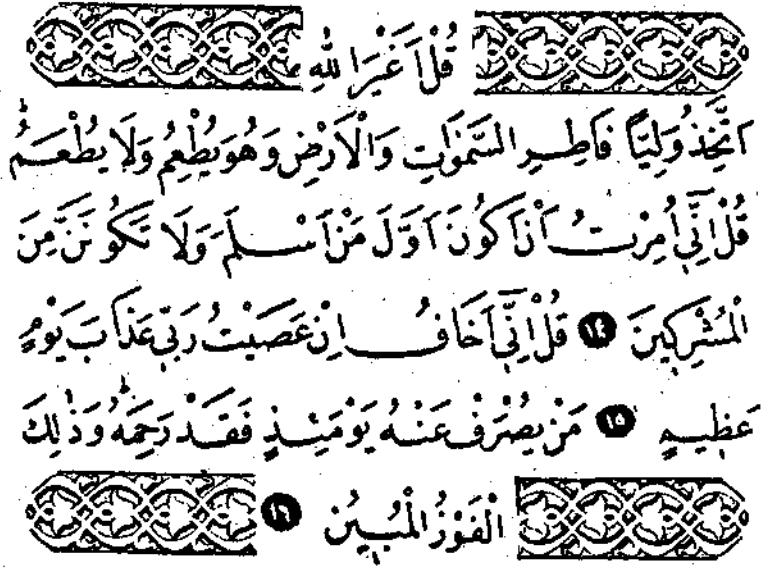 قُلْ اَغَيْرَ اللّٰهِ
اَتَّخِذُ وَلِيًّا فَاطِرِ السَّمٰوَاتِ وَالْاَرْضِ وَهُوَ يُطْعِمُ وَلَا يُطْعَمُ ۜ
قُلْ اِنّٓي اُمِرْتُ اَنْ اَكُونَ اَوَّلَ مَنْ اَسْلَمَ وَلَا تَكُونَنَّ مِنَ
الْمُشْرِكِينَ ١٤ قُلْ اِنّٓي اَخَافُ اِنْ عَصَيْتُ رَبّ۪ي عَذَابَ يَوْمٍ
عَظ۪يمٍ ١٥ مَنْ يُصْرَفْ عَنْهُ يَوْمَئِذٍ فَقَدْ رَحِمَهُ ۜ وَذٰلِكَ
الْفَوْزُ الْمُب۪ينُ ١٦